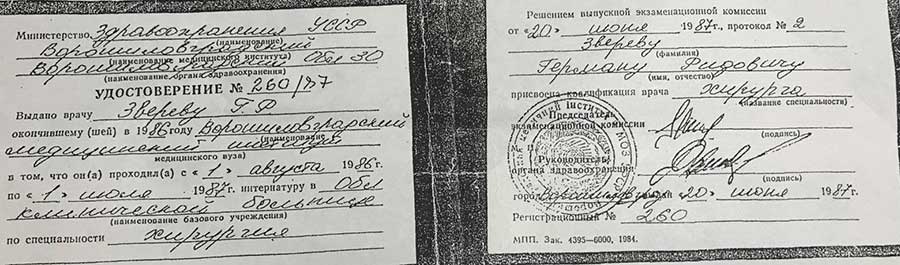 Министерство Здравоохранения УССР
(наименование)
Ворошиловградский
(наименование медицинского института)
Ворошиловградский Обл ЗО
(наименование органа здравоохранения)
УДОСТОВЕРЕНИЕ № 260/87
Выдано врачу Звереву Г.Р
окончившему (шей) в 1986 году Ворошиловградский
(наименование
медицинский институт
медицинского вуза)
в том, что он(а) проходил(а) с «1» августа 1986 г.
по «1» июля 1987 г. интернатуру в Обл
клинической больнице
(наименование базового учреждения)
по специальности хирургия
Решением выпускной экзаменационной комиссии
от «20» июня 1987 г., протокол № 2
Звереву
(фамилия)
Герману Ридовичу
(имя, отчество)
присвоена квалификация врача хирурга
(название специальности)
Председатель
экзаменационной комиссии
(подпись)
М. П.
(Руководитель
органа здравоохранения
(подпись)
город Ворошиловград 20 июня 1987 г.
Регистрационный № 260
МПП. Зак. 4395—6000, 1984.